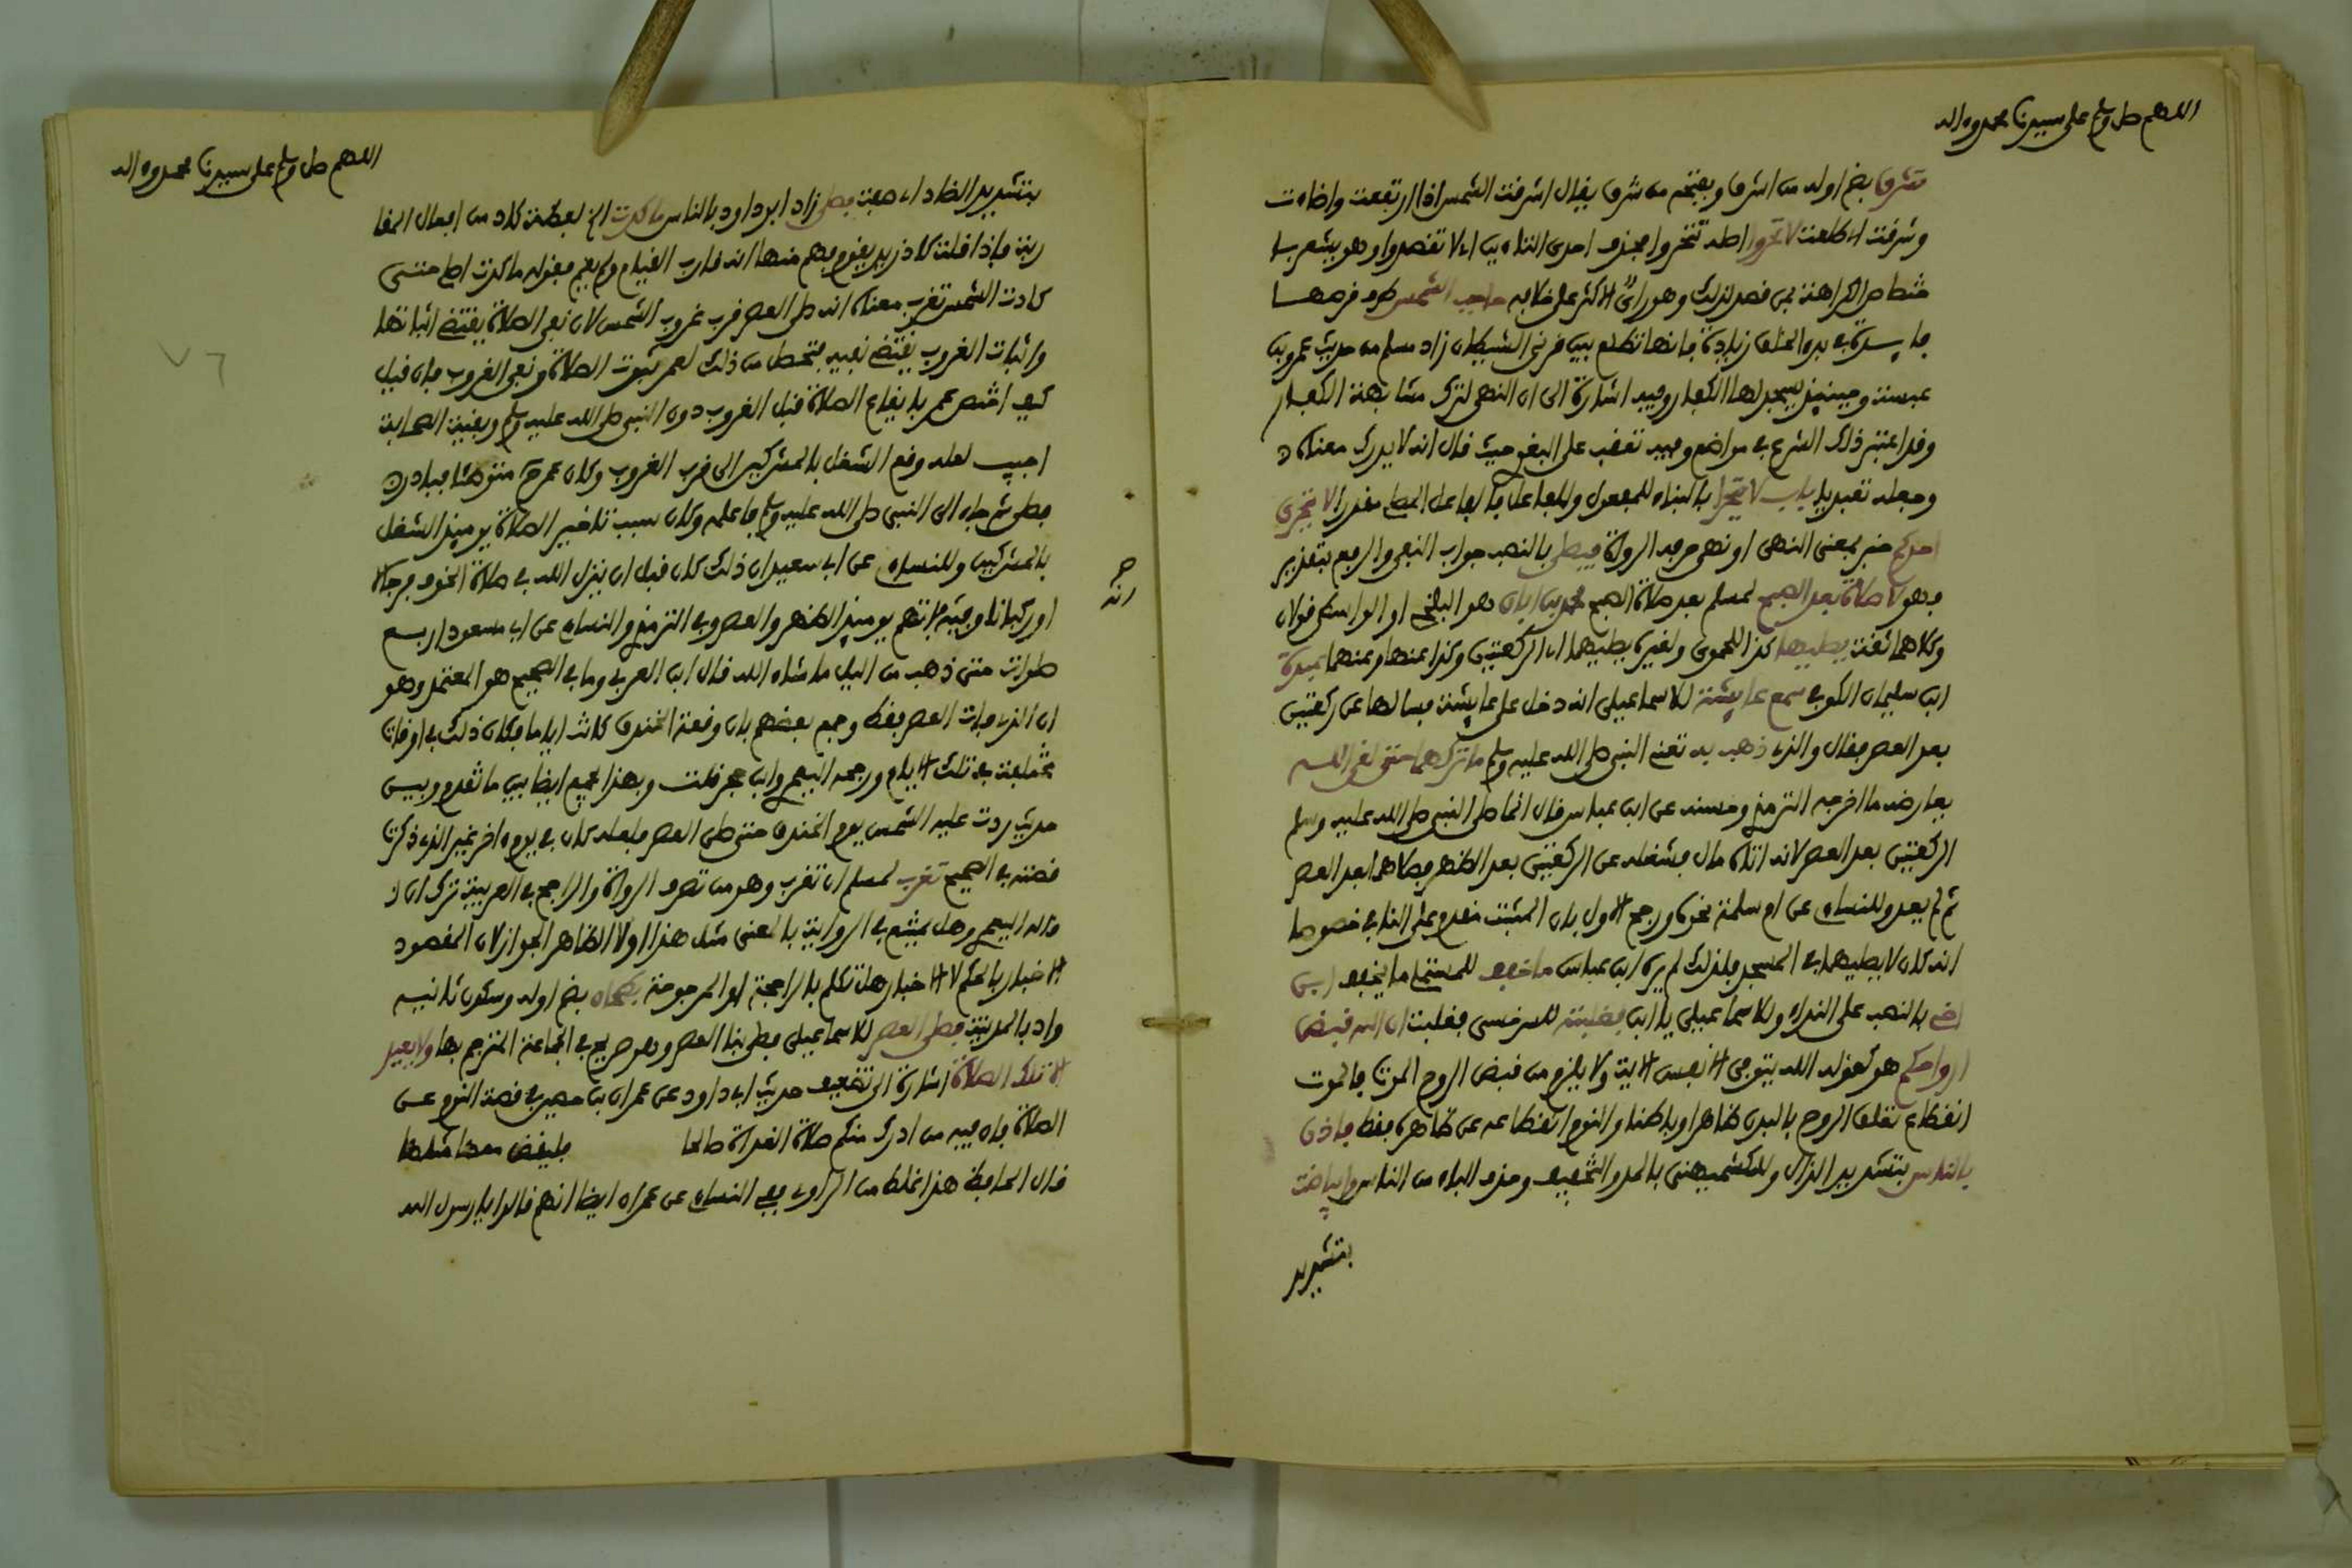 اللهم صل وسلم على سيدنا محمد وءاله
تشرق بضم اوله من اشرق وبفتحه من شرق يقال اشرقت الشمس اذا ارتفعت واضاءت
وشرقت اي طلعت لا تحروا اصله تتحروا فحذف احدى التاءين اي لا تقصدوا وهو يشعر با
ختصاص الكراهة بمن قصد لذلك وهو راي والاكثر على خلافه حاجب الشمس طرف قرصها
في بدء الخلق زيادة فانها تطلع بين قرني الشيطان زاد مسلم من حديث عمرو بن
عبسة وحينئذ يسجد لها الكفار وفيه اشارة الى ان النهي لترك مشابهة الكفار
وقد اعتبر ذلك الشرع في مواضع وفيه تعقب على البغوي حيث قال انه لا يدرك معناه
وجعله تعبديا باب لا يتحرى بالبناء للمفعول وللفاعل فالفاعل المصلي مقدرا لا يتحرى
احدكم خبر بمعنى النهي او نهي حرفه الرواة فيصلي بالنصب جواب النفي والرفع بتقدير
فهو لا صلاة بعد الصبح لمسلم بعد صلاة الصبح محمد بن ابان هو البلخي او الواسطي قولان
وكلاهما ثقة يصليها كذا للحموي ولغيره يصليهما اي الركعتين وكذا عنها وعنهما عبدة
ابن سليمان الكوفي سمع عايشة للاسماعيلي انه دخل على عايشة فسالها عن ركعتين
بعد العصر فقالت والذي ذهب به تعني النبي صلى الله عليه وسلم ما تركهما حتى لقي الله
يعارضه ما اخرجه الترمذي وحسنه عن ابن عباس قال انما صلى النبي صلى الله عليه وسلم
الركعتين بعد العصر لانه اتاه مال فشغله عن الركعتين بعد الظهر فصلاهما بعد العصر
ثم لم يعد وللنساءي عن ام سلمة نحوه ورجح الاول بان المثبت مقدم على النافي خصوصا
انه كان لا يصليهما في المسجد فلذلك لم يره ابن عباس ما خفف للمستملي ما يخفف ابن
اخي بالنصب على النداء وللاسماعيلي يا ابن فغلبته للسرخسي فغلبت ان الله قبض
ارواحكم هو كقوله الله يتوفى الانفس الاية ولا يلزم من قبض الروح الموت فالموت
انقطاع تعلق الروح بالبدن ظاهرا وباطنا والنوم انقطاعه عن ظاهره فقط فاذن
بالناس بتشديد الذال وللكشميهني بالمد والتخفيف وحذف الباء من الناس وابياضت
بتشديد
اللهم صل وسلم على سيدنا محمد وءاله
بتشديد الضاد اي صفت فصلى زاد ابو داود بالناس ما كدت الخ لفظة كاد من افعال المقا
ربة فاذا قلت كاد زيد يقوم فهم منها انه قارب القيام ولم يقم فقوله ما كدت اصلي حتى
كادت الشمس تغرب معناه انه صلى العصر قرب غروب الشمس لان نفي الصلاة يقتضي اثباتها
واثبات الغروب يقتضي نفيه فتحصل من ذلك لعمر ثبوت الصلاة ونفي الغروب فان قيل
كيف اختص عمر بايقاع الصلاة قبل الغروب دون النبي صلى الله عليه وسلم وبقية الصحابة
اجيب لعله وقع الشغل بالمشركين الى قرب الغروب وكان عمر ح متوضئا فبادر
فصلى ثم جاء الى النبي صلى الله عليه وسلم فاعلمه وكان سبب تاخير الصلاة يوميذ الشغل
بالمشركين وللنساءي عن ابي سعيد ان ذلك كان قبل ان ينزل الله في صلاة الخوف فرجالا
او ركبانا وفيه فاتتهم يوميذ الظهر والعصر وفي الترمذي والنساءي عن ابن مسعود اربع
صلوات حتى ذهب من اليل ما شاء الله قال ابن العربي وما في الصحيح هو المعتمد وهو
ان الذي فات العصر فقط وجمع بعضهم بان وقعة الخندق كانت اياما فكان ذلك في اوقات
مختلفة في تلك الايام ورجحه اليعمري وابن حجر قلت وبهذا يجمع ايضا بين ما تقدم وبين
حديث ردت عليه الشمس يوم الخندق حتى صلى العصر فلعله كان في يوم ءاخر غير الذي ذكرت
قصته في الصحيح تغرب لمسلم ان تغرب وهو من تصرف الرواة والراجح في العربية ترك ان
قاله اليعمري وهل يمتنع في الرواية بالمعنى مثل هذا اولا الظاهر الجواز لان المقصود
الاخبار بالحكم لا الاخبار هل تكلم بالراجحة او المرجوحة بطحان بضم اوله وسكون ثانيه
واد بالمدينة فصلى العصر للاسماعيلي فصلى بنا العصر وهو صريح في الجماعة المترجم بها ولا يعيد
الا تلك الصلاة اشارة الى تضعيف حديث ابي داود عن عمران بن حصين في قصة النوم عن
الصلاة فان فيه من ادرك منكم صلاة الغداة صالحا فليقض معها مثلها
قال الحافظ هذا غلط من الراوي ففي النساءي عن عمران ايضا انهم قالوا يا رسول الله